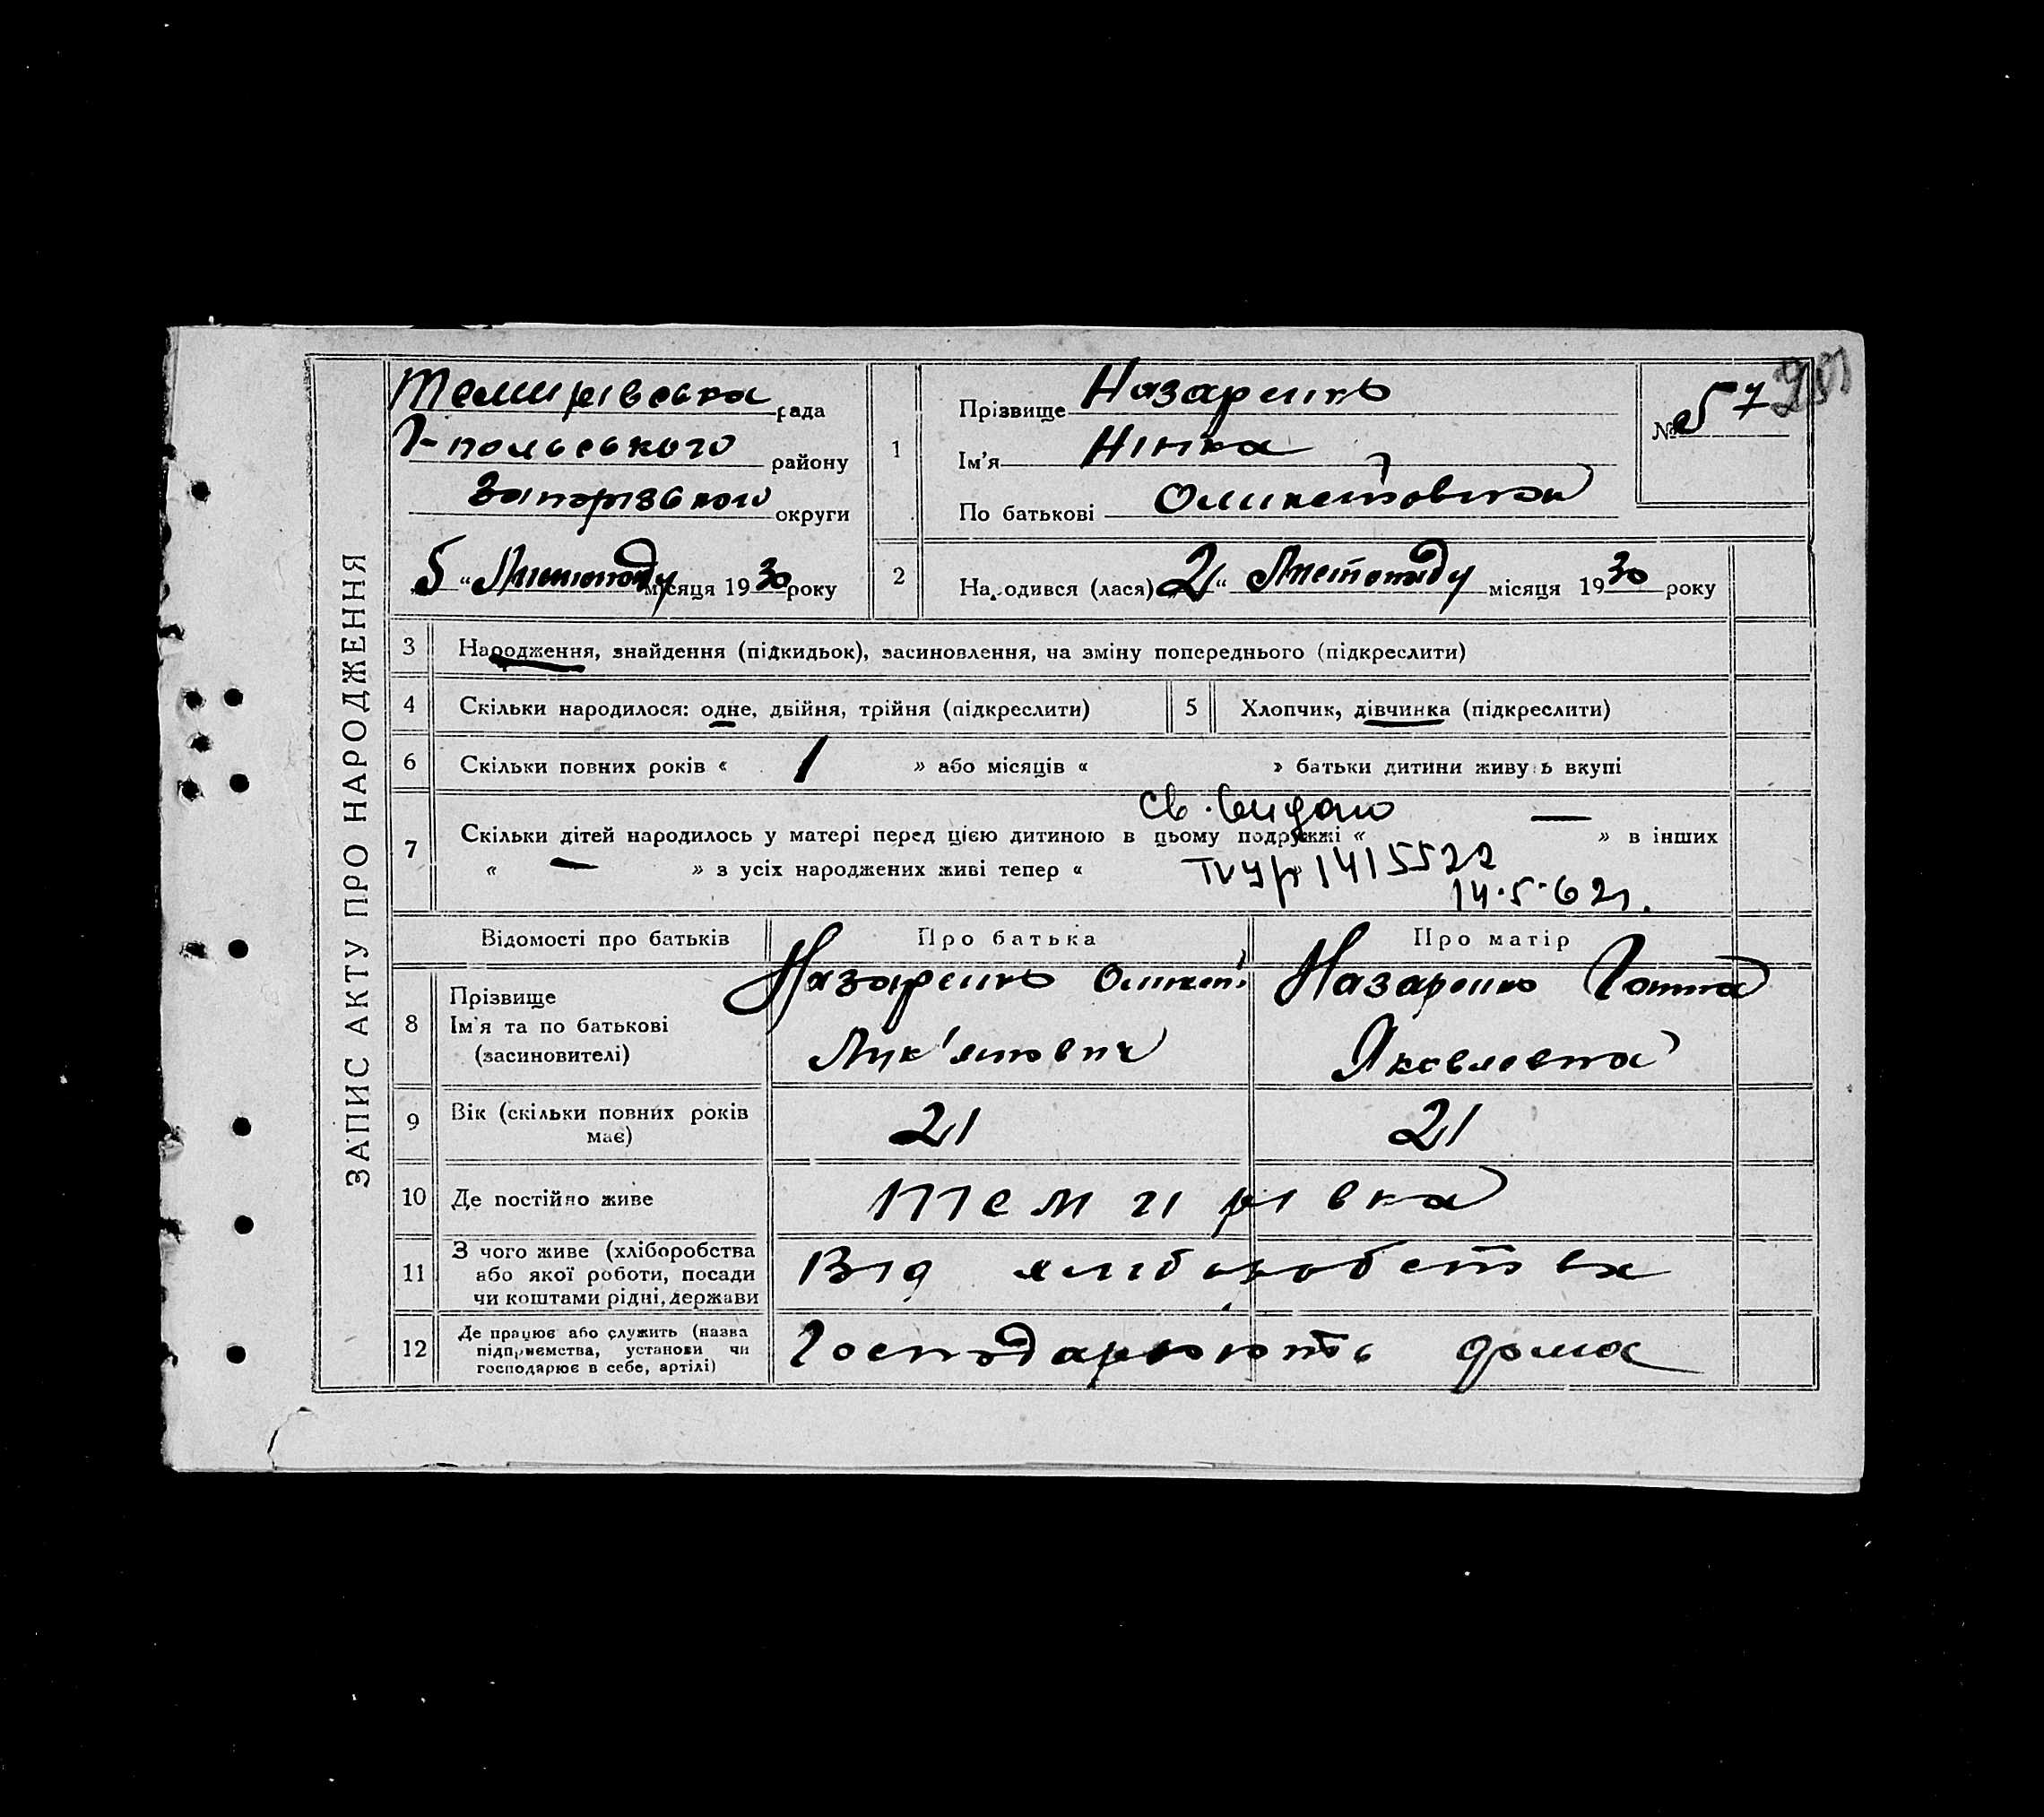 ЗАПИС АКТУ ПРО НАРОДЖЕННЯ
Темирівська рада
Г-польського району
Запорізького округи
5 " Листопаду місяця 1930 року
1
Прізвище Назаренко
Ім'я Нінка
По батькові
№ 57
2
Народився (лася) 2 " Листопаду місяця 1930 року
3 Народження, знайдення (підкидьок), засиновлення, на зміну попереднього (підкреслити)
4 Скільки народилося: одне, двійня, трійня (підкреслити)
5 Хлопчик, дівчинка (підкреслити)
6 Скільки повних років « 1 » або місяців « » батьки дитини живуть вкупі
7 Скільки дітей народилось у матері перед цією дитиною в цьому подружжі « — » в інших
« — » з усіх народжених живі тепер «
1415522
14.5.62
Відомості про батьків
Про батька
Про матір
8 Прізвище
Ім'я та по батькові
(засиновителі)
Назаренко
Лук'янович
Назаренко Ганна
Яковлевна
9 Вік (скільки повних років має)
21
21
10 Де постійно живе
Темирівка
11 З чого живе (хліборобства
або якої роботи, посади
чи коштами рідні, держави
Від хліборобства
12 Де працює або служить (назва
підприємства, установи чи
господарює в себе, артілі)
Господарюють дома